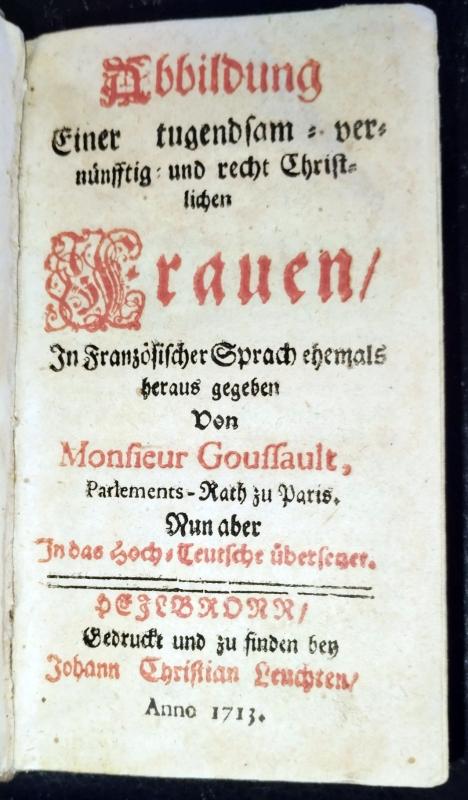 Abbildung
Einer tugendsam⸗ ver⸗
nünfftig⸗ und recht Christ⸗
lichen
Frauen/
In Französischer Sprach ehemals
heraus gegeben
Von
Monsieur Goussault,
Parlements-Rath zu Paris.
Nun aber
In das Hoch⸗Teutsche übersetzet.
HEJLBRONN/
Gedruckt und zu finden bey
Johann Christian Leuchten/
Anno 1713.